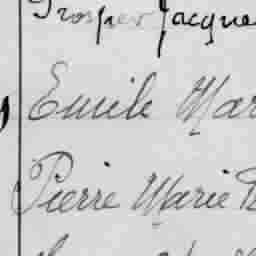 Prosper Jacques
Emile Mar
Pierre Marie